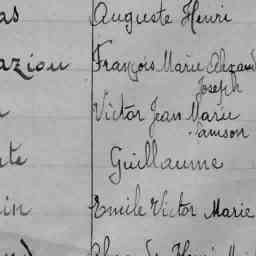 as Auguste Henri
aziou François Marie Alexand
Joseph
Victor Jean Marie
Samson
te Guillaume
in Emile Victor Marie
Henri